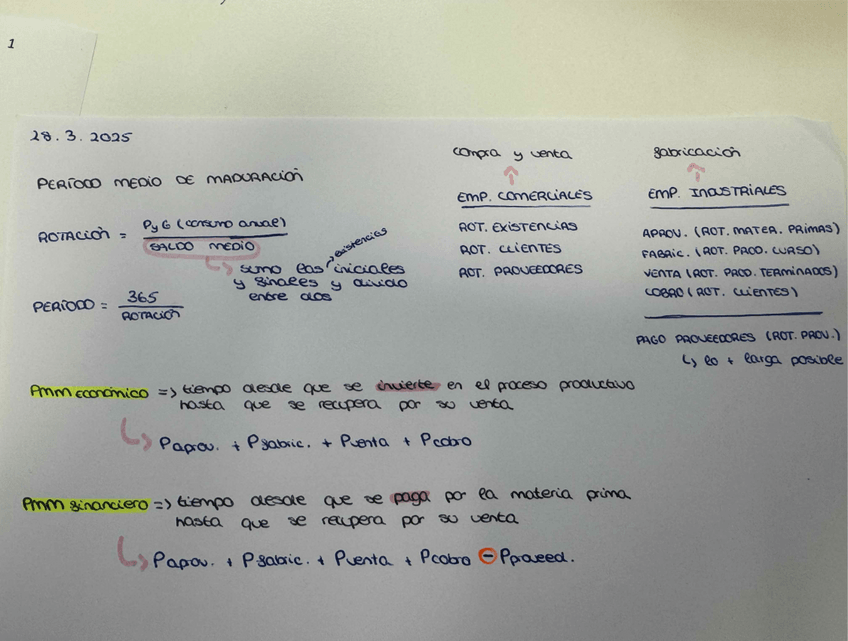 1
28.3.2025
PERÍODO MEDIO DE MADURACIÓN
ROTACIÓN = PyG (consumo anual)
SALDO MEDIO
↳ sumo las iniciales
existencias
y finales y divido
entre dos
PERÍODO = 365
ROTACIÓN
compra y venta
EMP. COMERCIALES
ROT. EXISTENCIAS
ROT. CLIENTES
ROT. PROVEEDORES
fabricación
EMP. INDUSTRIALES
APROV. (ROT. MATER. PRIMAS)
FABRIC. (ROT. PROD. CURSO)
VENTA (ROT. PROD. TERMINADOS)
COBRO (ROT. CLIENTES)
PAGO PROVEEDORES (ROT. PROV.)
↳ lo + larga posible
PMM económico => tiempo desde que se invierte en el proceso productivo
hasta que se recupera por su venta
↳ Paprov. + Pfabric. + Pventa + Pcobro
PMM financiero => tiempo desde que se paga por la materia prima
hasta que se recupera por su venta
↳ Paprov. + Pfabric. + Pventa + Pcobro - Pproveed.